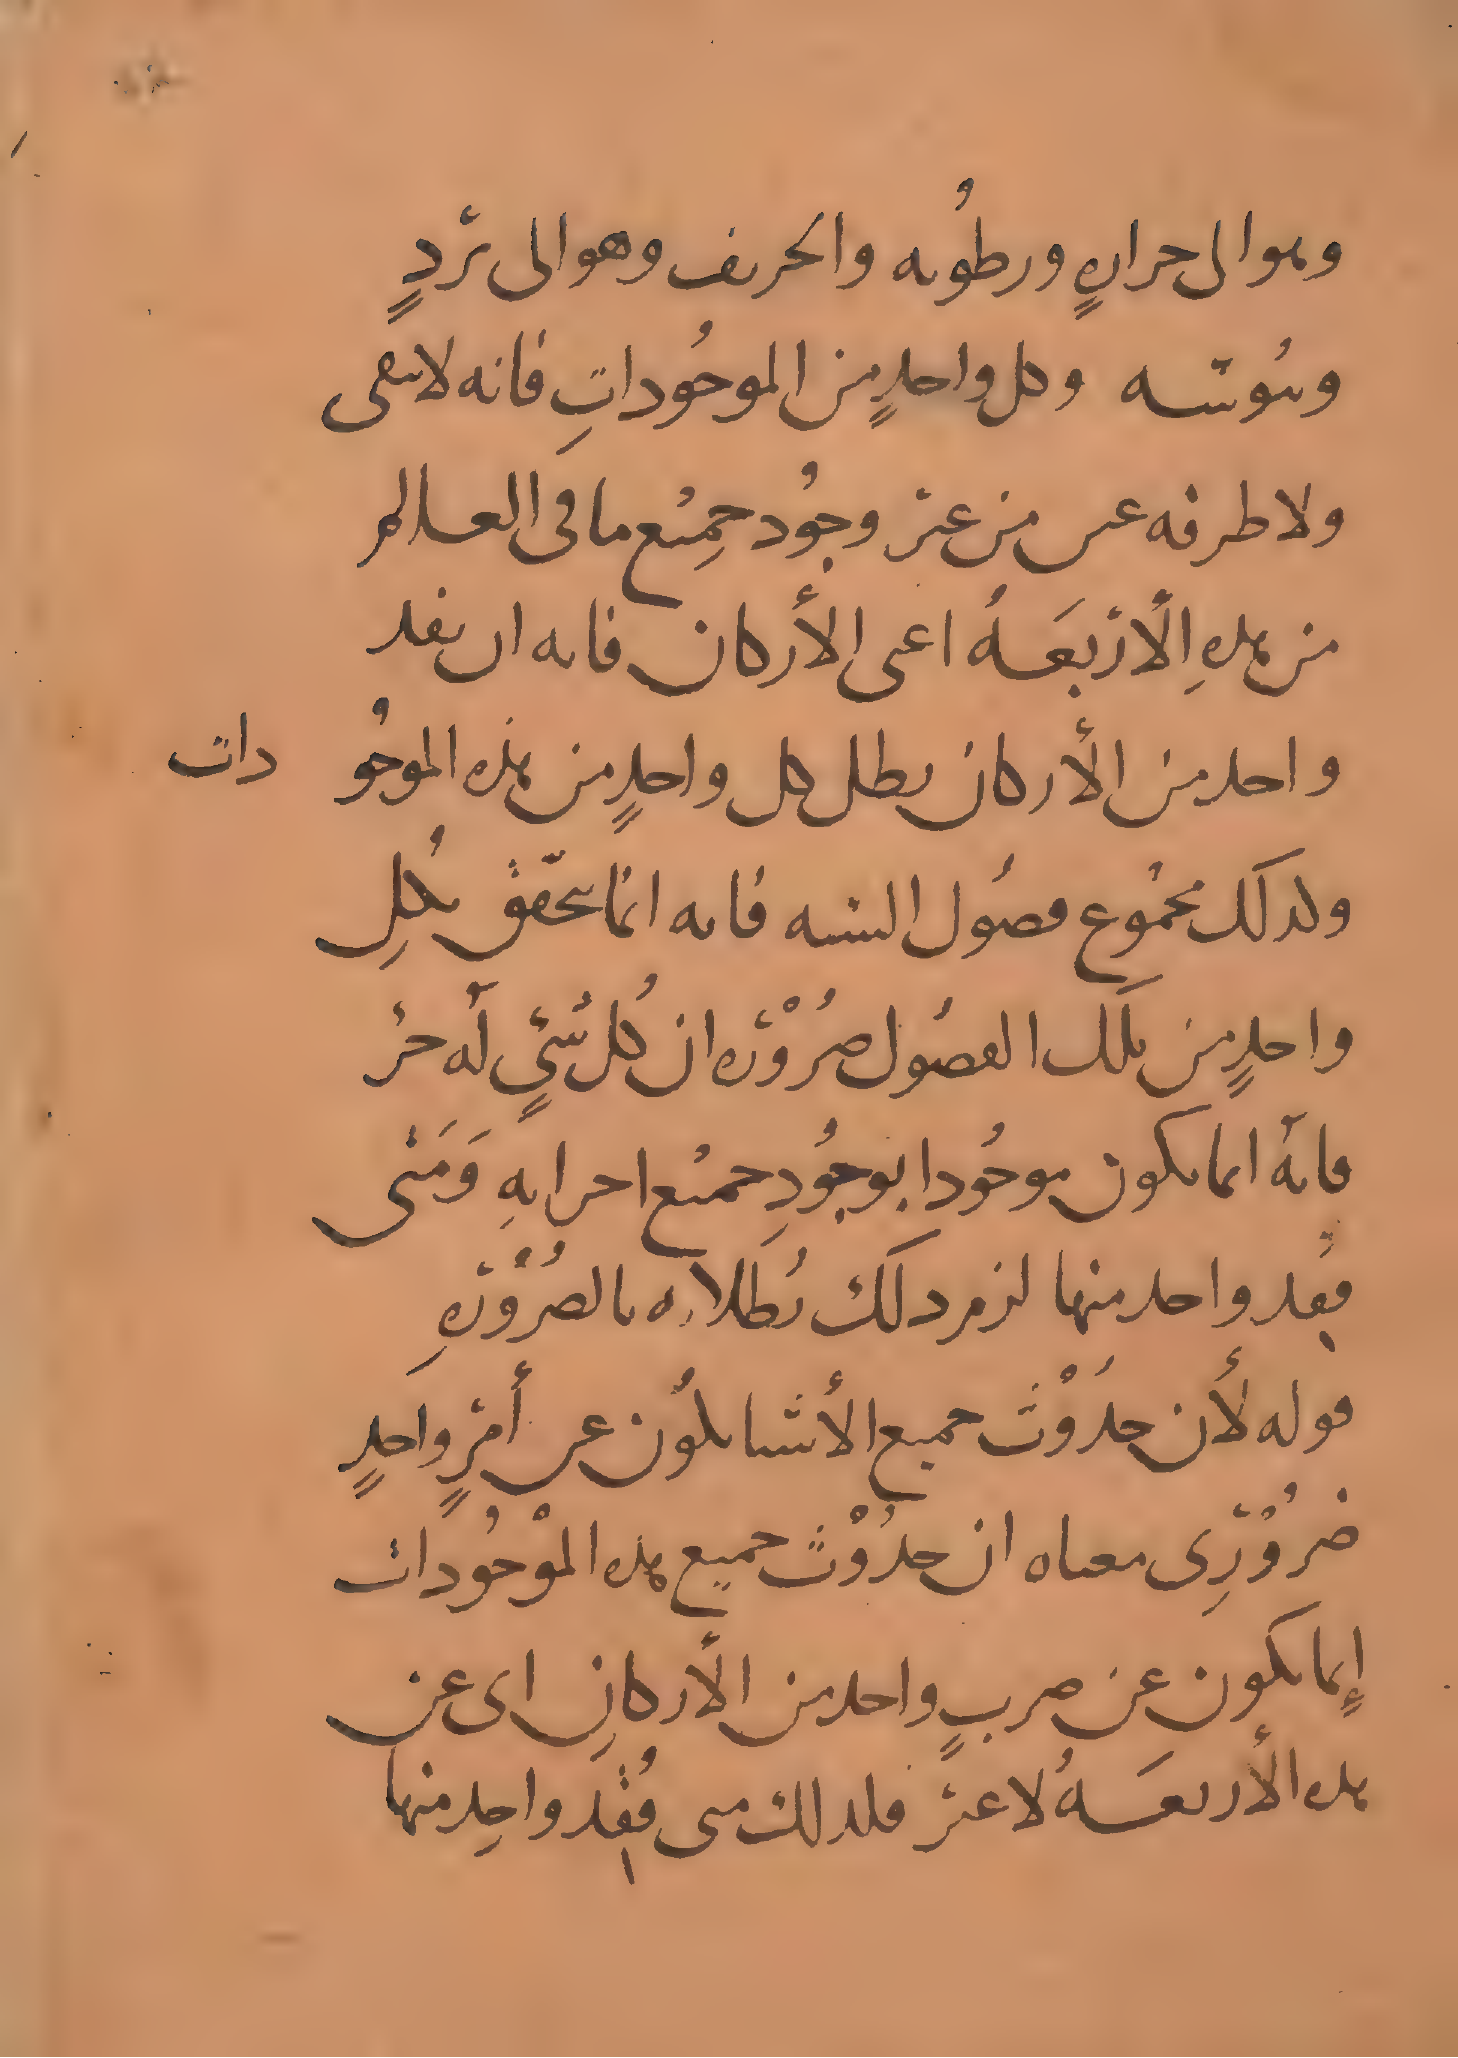 وهوا الى حراره ورطُوبه والخريف وهو الى بَردٍ
ويبُوسه وكل واحدٍ من الموجُوداتِ فانه لا يبقى
ولا طرفه عين من غير وجُود جميع ما فى العالم
من هذهِ الأربَعَهُ اعنى الأركان فانه ان نفد
واحد من الأركان بطل كل واحدٍ من هذه الموجُودات
ولذلَك مجموع فصُول السنه فانه انما يتحقّق بكُلِ
واحدٍ من تلَك الفصُول ضرُوْرَه ان كُل شئٍ له جزُ
فانه انما يكون موجُودا بوجُودِ جميع اجزايهِ وَمَتى
فُقِد واحد منها لزم ذلَك بُطلانه بالضرُوْرَهِ
قوله لأن حدُوْث جميع الأشيا يكُون عن أمرٍ واحدٍ
ضرُوْرِى معناه ان حدُوْث جميع هذه الموْجُودات
إنما يكون عن ضربٍ واحد من الأركانِ اى عن
هذه الأربعَهُ لا غير فلذلك متى فُقِد واحِد منها